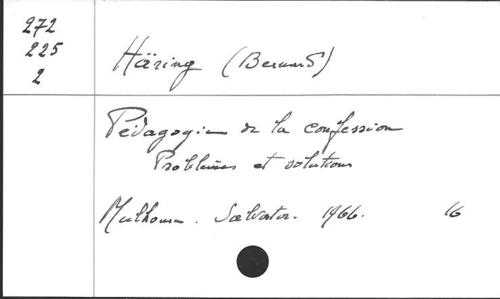 272
225
2
Häring (Bernard)
Pédagogie de la confession
Problèmes et solutions
Mulhouse. Salvator. 1966. 16